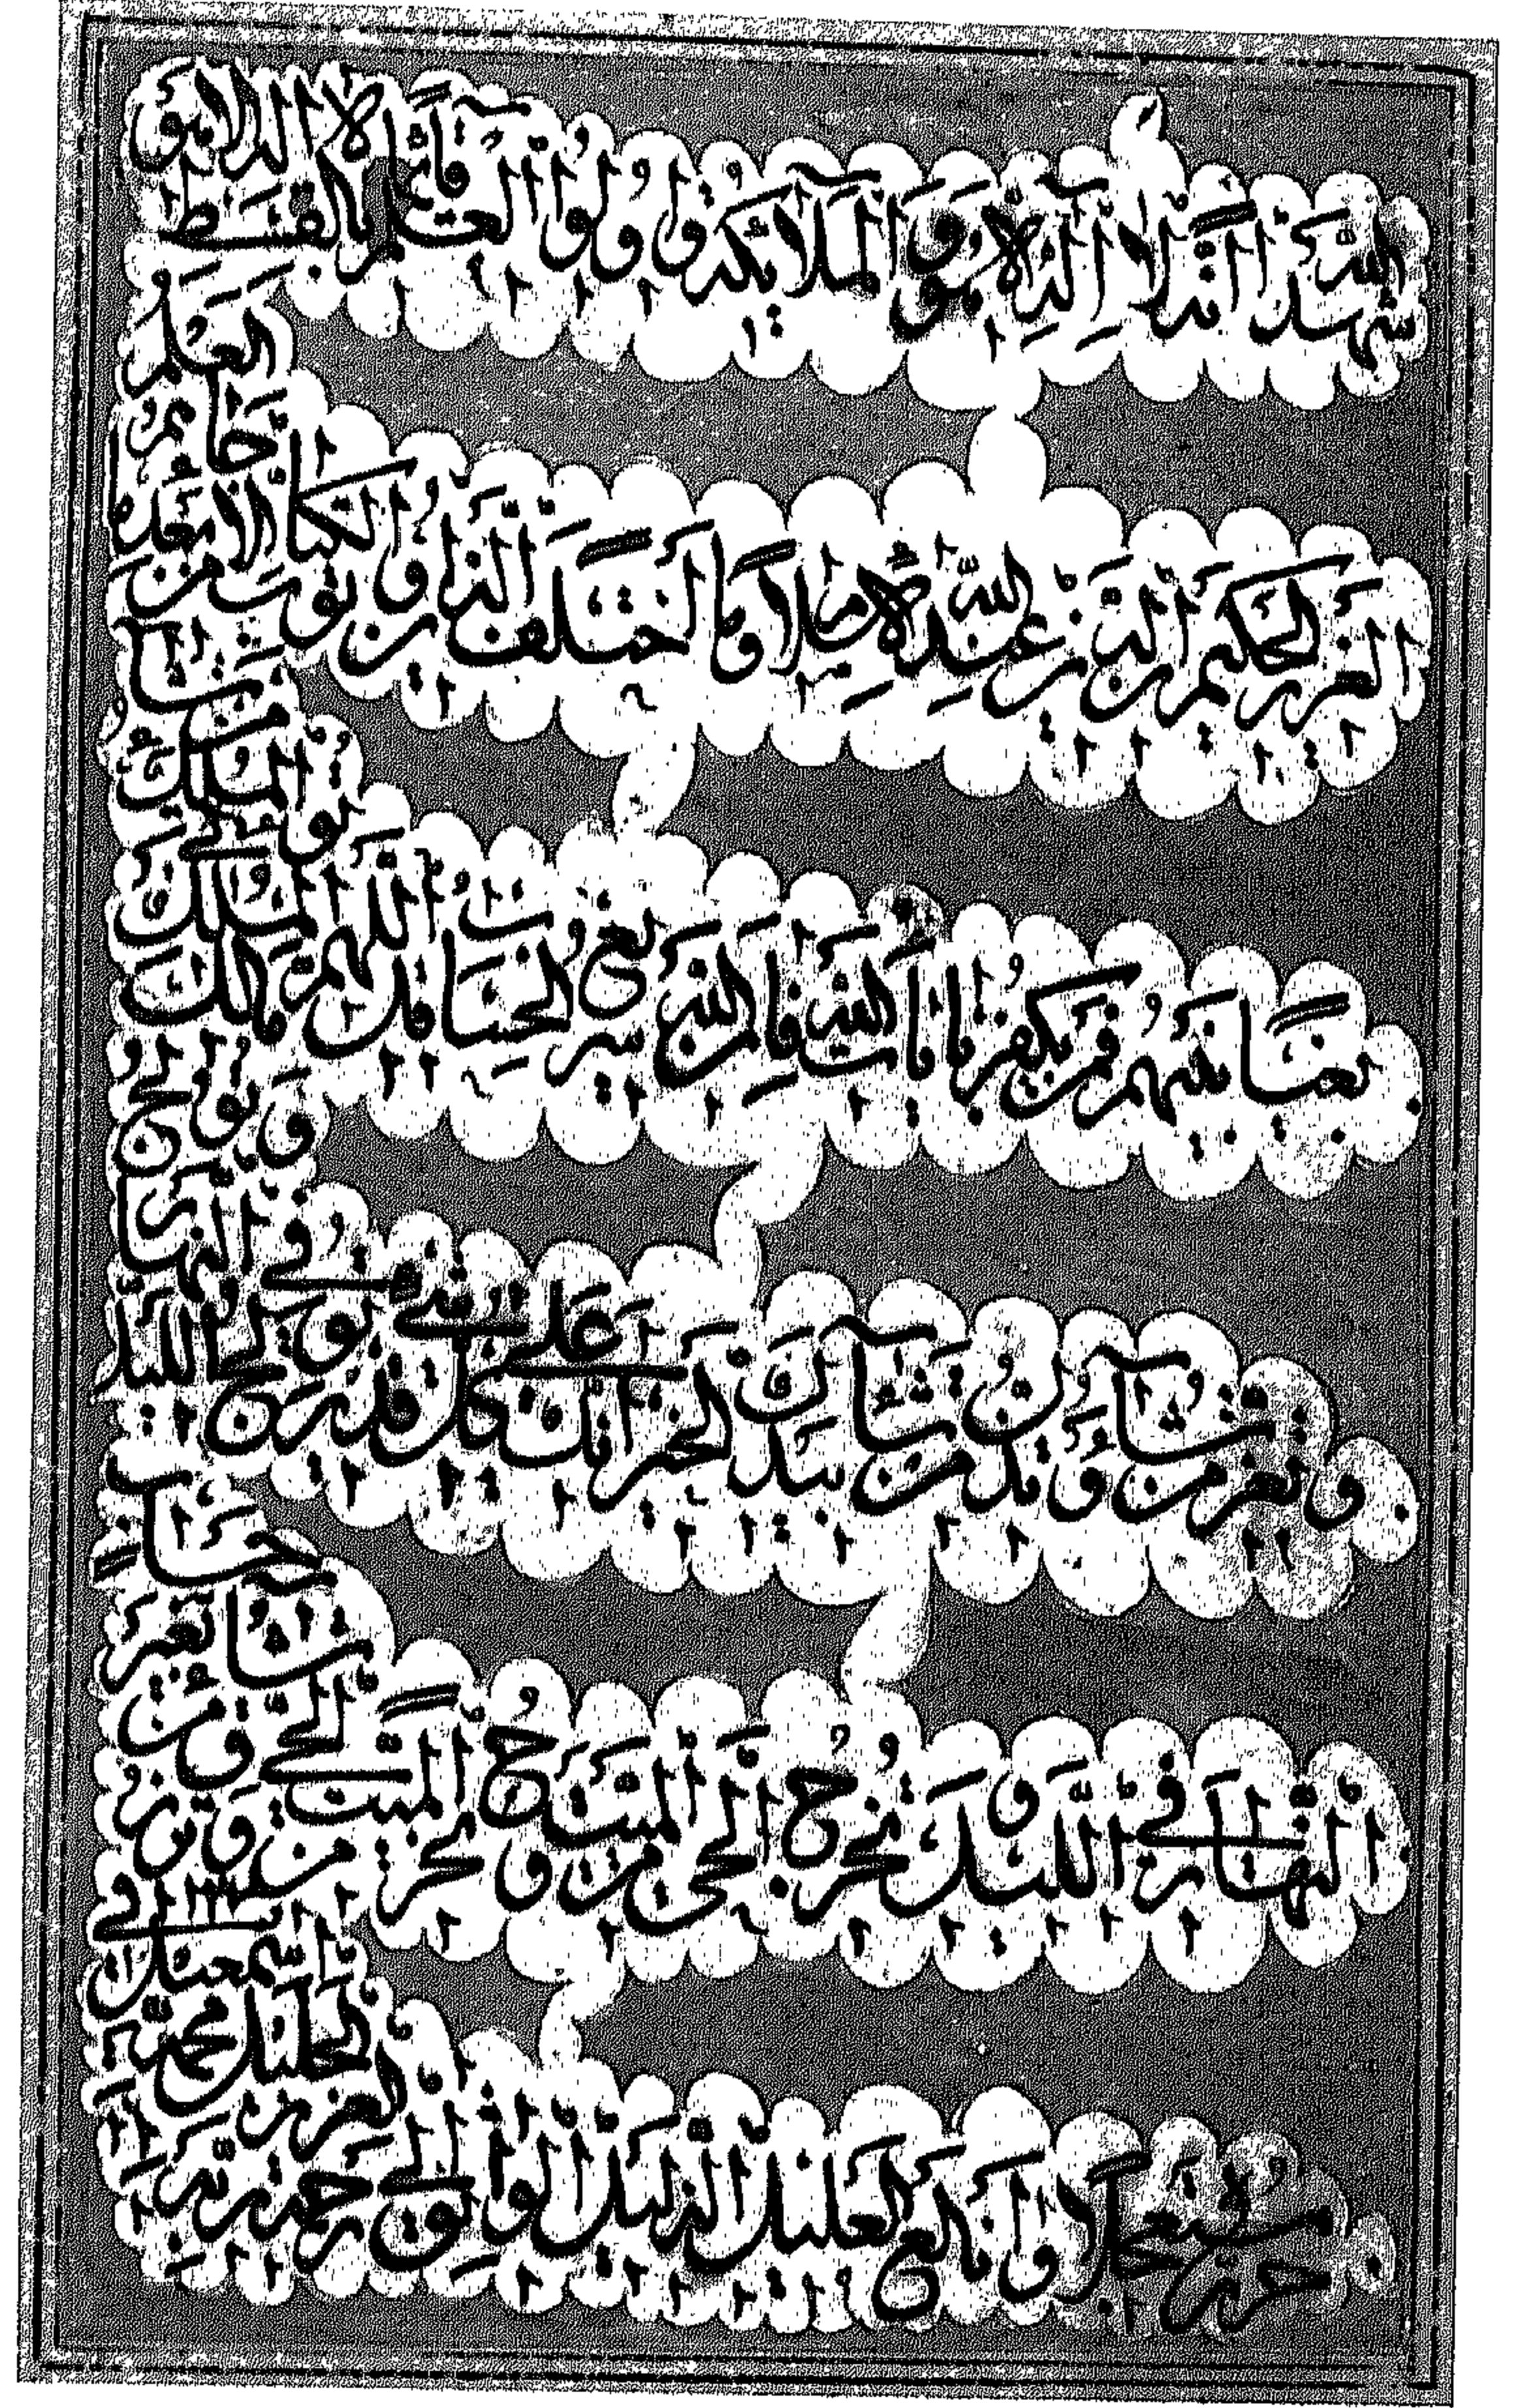 شهد الله انه لا اله الا هو والملائكة واولوا العلم قائما بالقسط لا اله الا هو
العزيز الحكيم ان الدين عند الله الاسلام وما اختلف الذين اوتوا الكتاب الا من بعد ما جاءهم العلم
بغيا بينهم ومن يكفر بايات الله فان الله سريع الحساب قل اللهم مالك الملك تؤتي الملك من تشاء
وتعز من تشاء وتذل من تشاء بيدك الخير انك على كل شيء قدير تولج الليل في النهار وتولج
النهار في الليل وتخرج الحي من الميت وتخرج الميت من الحي وترزق من تشاء بغير حساب
العبد الذليل الى رحمة ربه العزيز الجليل محمد اسمعيل